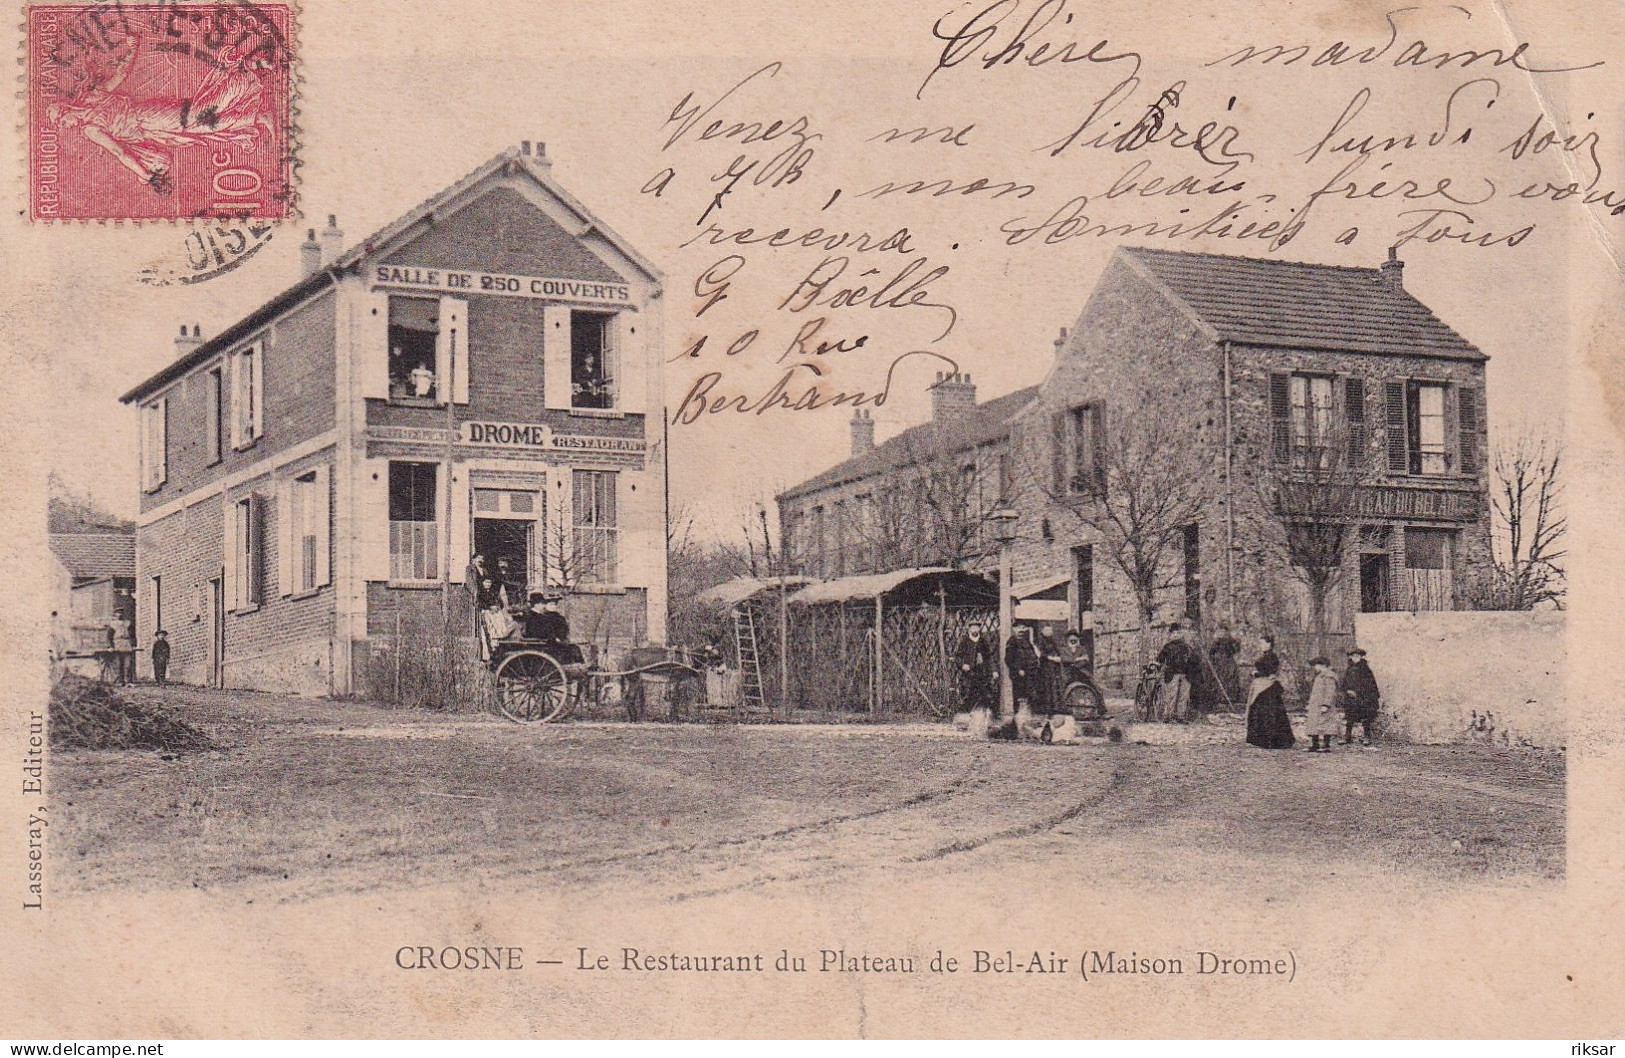 Chère madame
Venez me librér lundi soir
a 7h, mon beau-frére vous
recevra. Amitiées a Tous
G Böelle
10 Rue
Bertrand
REPUBLIQUE FRANÇAISE
POSTES
10c
14
SALLE DE 250 COUVERTS
DROME
RESTAURANT
PLATEAU DU BEL AIR
Lasseray, Editeur
CROSNE — Le Restaurant du Plateau de Bel-Air (Maison Drome)
delcampe.net
riksar